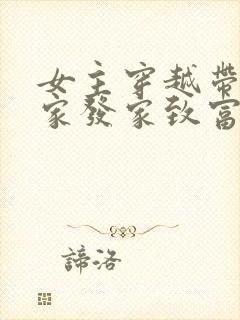 女主穿越帶
家發家致富
諦洛